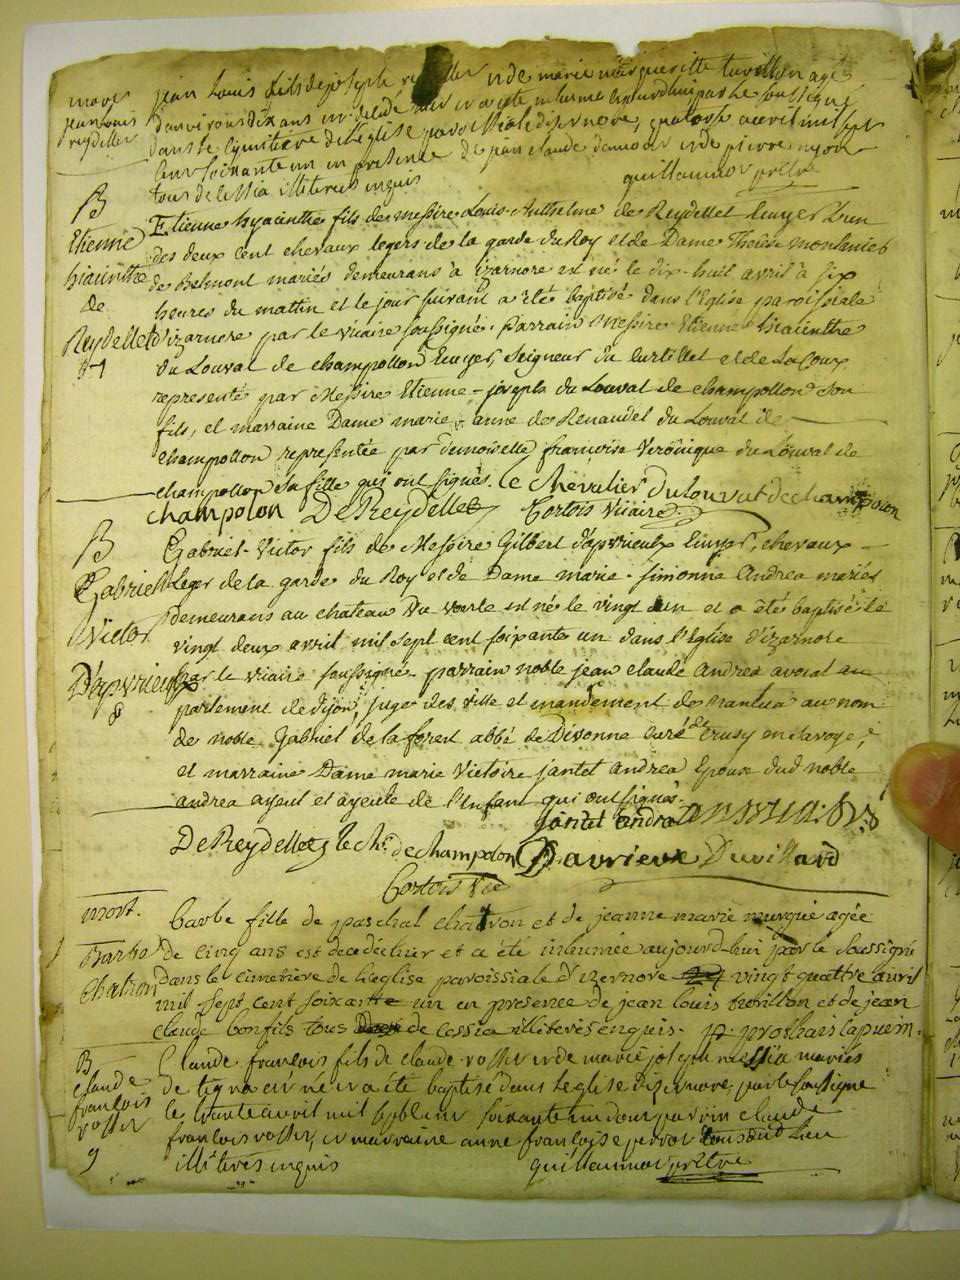 mort
jean Louis
reydellet
jean Louis fils de joseph reydellet et de marie margueritte tavillon agé
d'environ dix ans est decedé hier et a été inhumé aujourd'hui par le soussigné
dans le cymitiere de l'eglise paroissiale d'isernore, quatorse avril mil sept
cent soixante un en presence de jean claude damour et de pierre
tous de Cessia illiterés enquis guillaumot prêtre
B
Etienne
hiacinthe
de
Reydellet
7
Etienne hyacinthe fils de messire Louis Anthelme de Reydellet Ecuyer l'un
des deux cent chevaux legers de la garde du Roy et de Dame Therese montanier
de Belmont mariés demeurans à izarnore est né le dix-huit avril à six
heures du mattin et le jour suivant a été baptisé dans l'Eglise paroissiale
d'izarnore par le vicaire soussigné. parrain Messire Etienne hiacinthe
du Louvat de champollon Ecuyer, Seigneur du Curtillet et de La Coux
representé par Messire Etienne-joseph du Louvat de champollon son
fils, et marraine Dame marie anne de Renaudel du Louvat de
champollon representée par demoiselle françoise Veronique du Louvat de
champollon sa fille qui ont signés. le chevalier du louvat de champolon
champolon DeReydellet Cortois Vicaire
B
Gabriel
Victor
D'apvrieulx
8
Gabriel-Victor fils de Messire Gilbert d'apvrieulx Ecuyer, chevaux-
leger de la garde du Roy et de Dame marie-simonne Andrea mariés
demeurans au chateau du voerle est né le vingt un et a été baptisé le
vingt deux avril mil sept cent soixante un dans l'Eglise d'izarnore
par le vicaire soussigné. parrain noble jean claude Andrea avocat au
parlement de Dijon, juge des ville et mandement de Nantua au nom
de noble Gabriel de la forest abbé de Divonne curé de Crusy en Savoye,
et marraine Dame marie Victoire jantet andrea Epouse dud noble
andrea ayeul et ayeule de l'Enfant qui ont signés.
jantet andrea
DeReydellet le ch. de champolon Davrieux Duvillard
Cortois Vic
mort.
Barbe
Chatron
barbe fille de paschal chatron et de jeanne marie murguè agée
de cinq ans est decedé hier et a été inhumée aujourd-hui par le soussigné
dans le cimetiere de l'eglise paroissiale d'izernore vingt quattre avril
mil sept cent soixante un en presence de jean louis trevillon et de jean
claude bonfils tous de Cessia illiterés enquis.
B
claude
françois
rosset
9
Claude françois fils de claude rosset et de marie josephe messia mariés
de tignat est né et a été baptisé dans l'eglise d'isernore par le soussigné
le trente avril mil sept cent soixante un dont parrin claude
françois rosset, et marraine anne françoise perrot tous dud lieu
illiterés enquis guillaumot prêtre